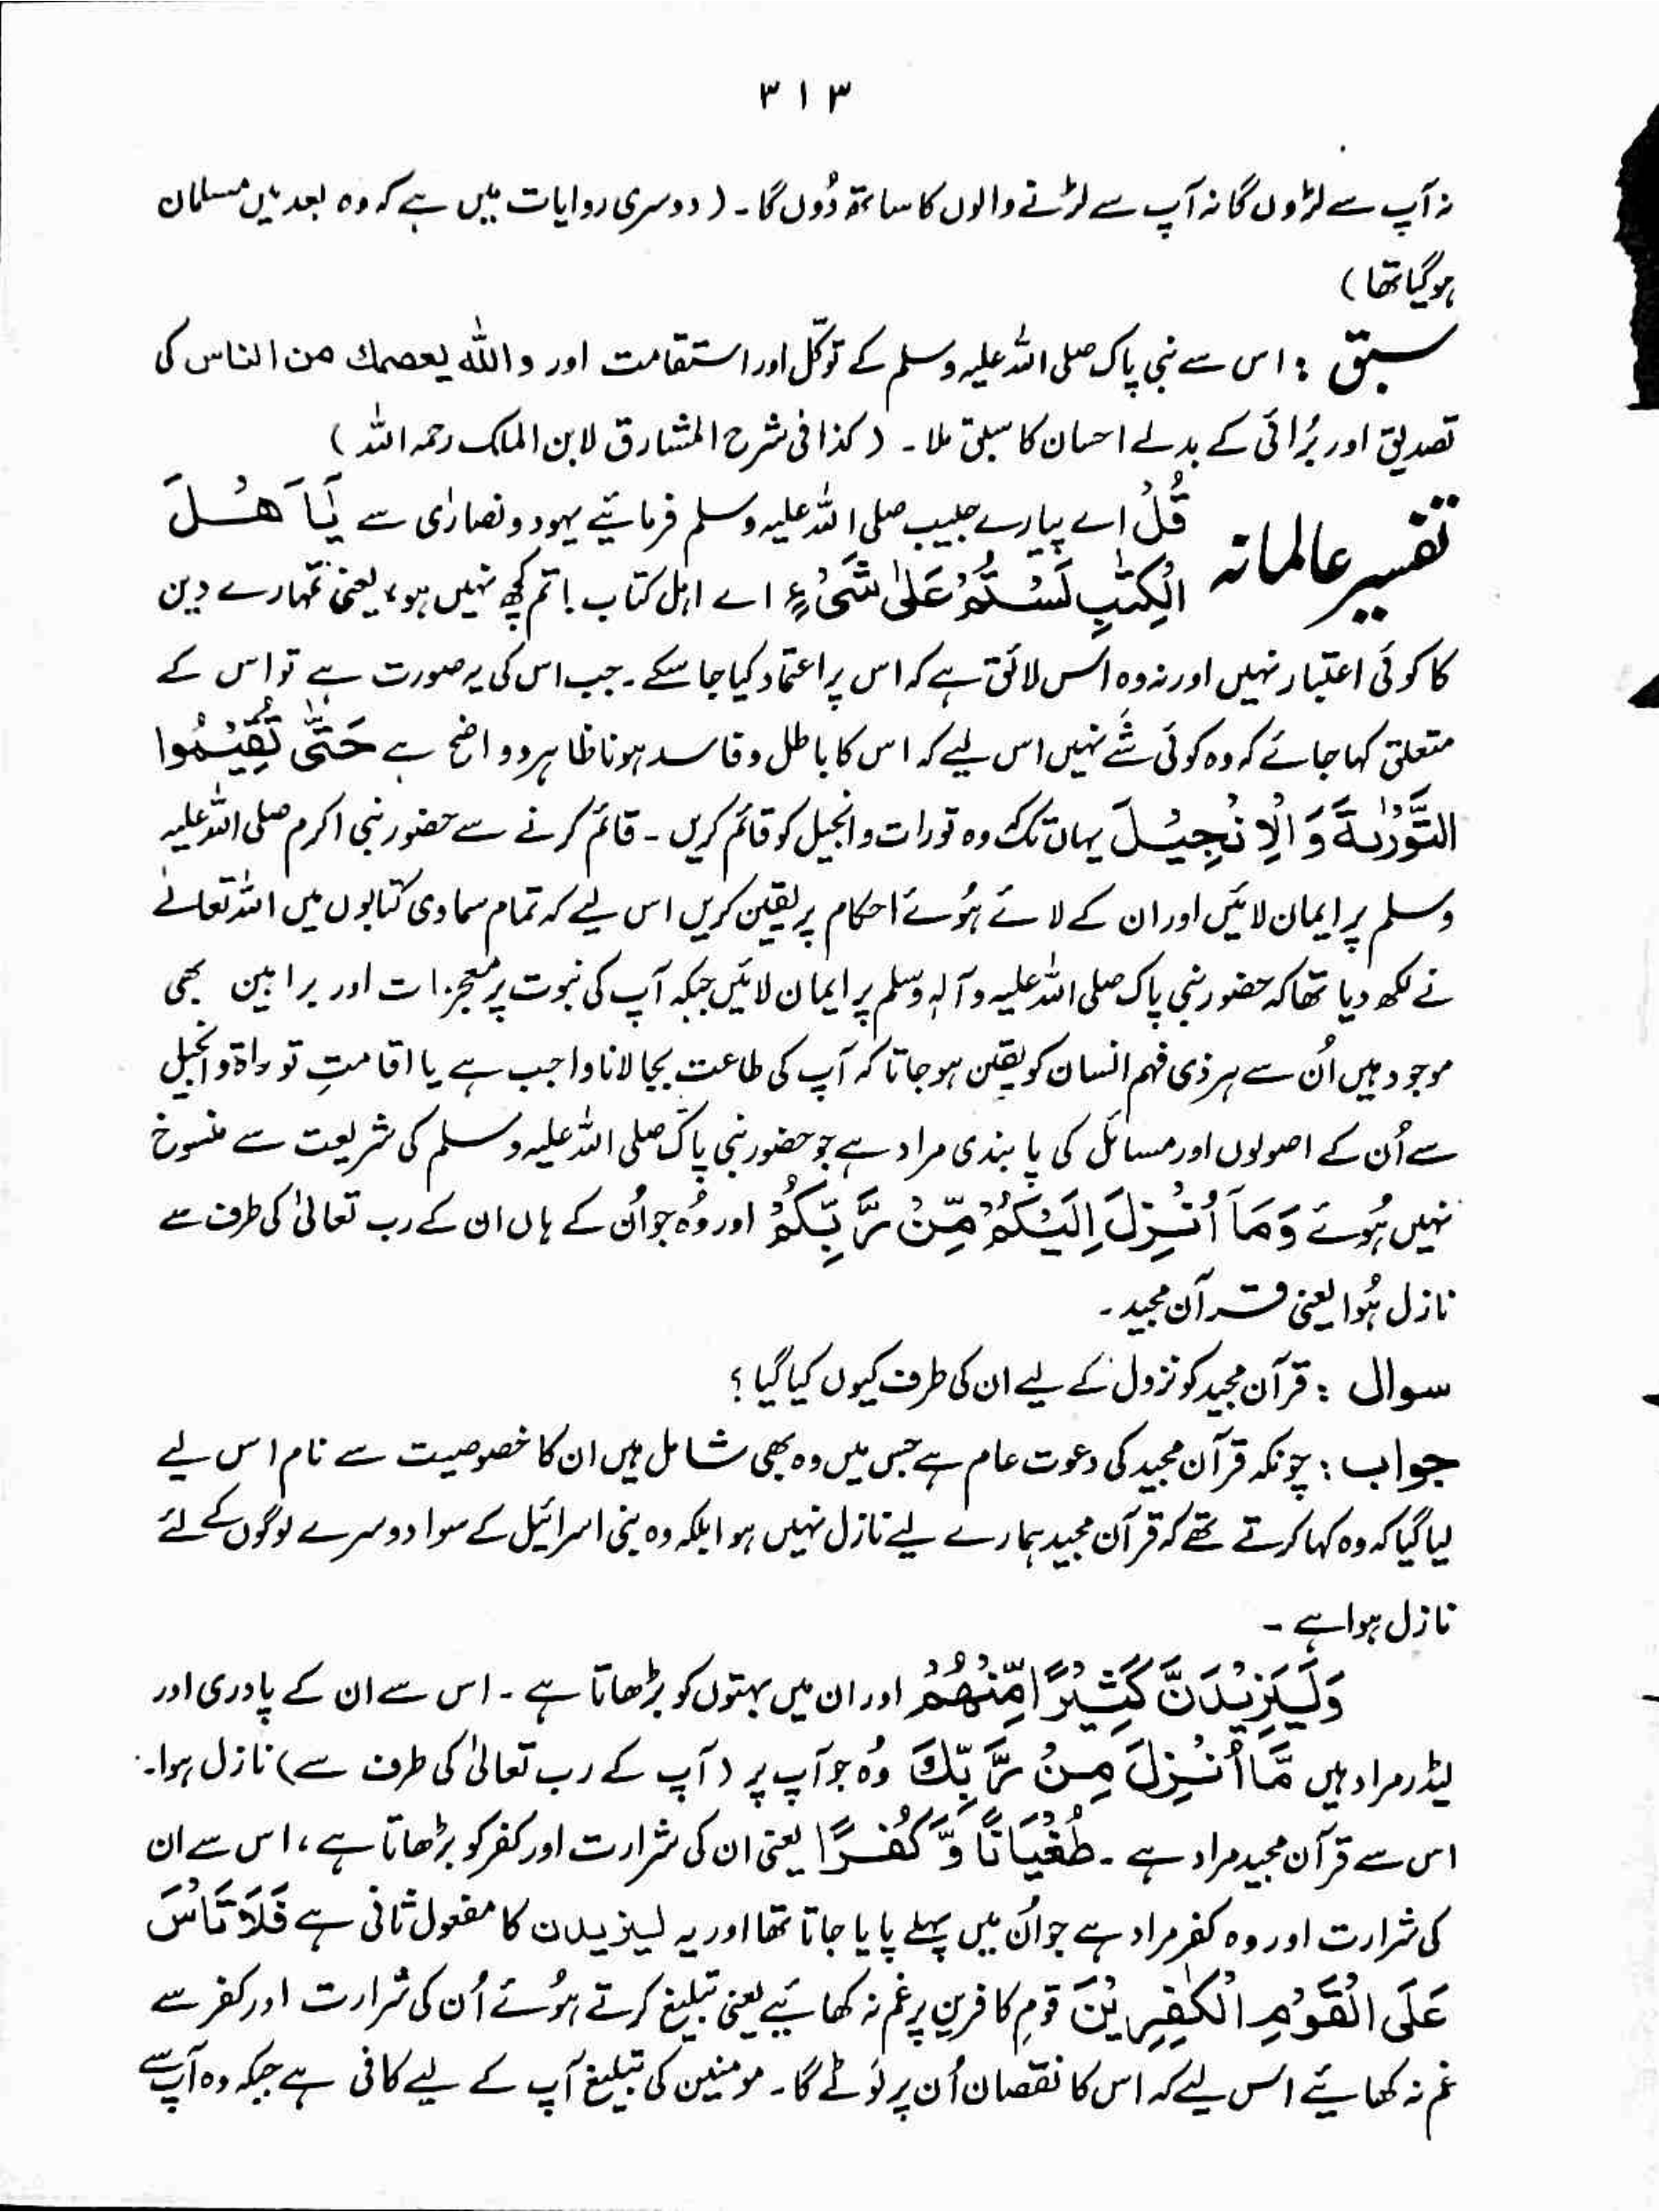 ۳۱۳
نہ آپ سے لڑوں گا نہ آپ سے لڑنے والوں کا ساتھ دُوں گا۔ (دوسری روایات میں ہے کہ وہ بعد میں مسلمان
ہوگیا تھا)
سبق : اس سے نبی پاک صلی اللہ علیہ وسلم کے توکّل اور استقامت اور واللّٰہ یعصمك من الناس کی
تصدیق اور بُرائی کے بدلے احسان کا سبق ملا۔ (کذا فی شرح المشارق لابن الملک رحمہ اللہ)
تفسیر عالمانہ قُلْ اے پیارے حبیب صلی اللہ علیہ وسلم فرمائیے یہود و نصارٰی سے یٰٓاَھْلَ
الْكِتٰبِ لَسْتُمْ عَلٰی شَیْءٍ اے اہل کتاب! تم کچھ نہیں ہو، یعنی تمہارے دین
کا کوئی اعتبار نہیں اور نہ وہ اس لائق ہے کہ اس پر اعتماد کیا جا سکے۔ جب اس کی یہ صورت ہے تو اس کے
متعلق کہا جائے کہ وہ کوئی شے نہیں اس لیے کہ اس کا باطل و فاسد ہونا ظاہر و واضح ہے حَتّٰی تُقِیْمُوا
التَّوْرٰىةَ وَ الْاِنْجِیْلَ یہاں تک وہ تورات و انجیل کو قائم کریں۔ قائم کرنے سے حضور نبی اکرم صلی اللہ علیہ
وسلم پر ایمان لائیں اور ان کے لائے ہُوئے احکام پر یقین کریں اس لیے کہ تمام سماوی کتابوں میں اللہ تعالےٰ
نے لکھ دیا تھا کہ حضور نبی پاک صلی اللہ علیہ وآلہٖ وسلم پر ایمان لائیں جبکہ آپ کی نبوت پر معجزات اور براہین بھی
موجود ہیں اُن سے ہر ذی فہم انسان کو یقین ہوجاتا کہ آپ کی طاعت بجا لانا واجب ہے یا اقامتِ توراۃ و انجیل
سے اُن کے اصولوں اور مسائل کی پابندی مراد ہے جو حضور نبی پاک صلی اللہ علیہ وسلم کی شریعت سے منسوخ
نہیں ہُوئے وَمَآ اُنْزِلَ اِلَیْكُمْ مِّنْ رَّبِّكُمْ اور وُہ جو اُن کے ہاں ان کے رب تعالیٰ کی طرف سے
نازل ہُوا یعنی قرآن مجید۔
سوال : قرآن مجید کو نزول کے لیے ان کی طرف کیوں کیا گیا؟
جواب : چونکہ قرآن مجید کی دعوت عام ہے جس میں وہ بھی شامل ہیں ان کا خصوصیت سے نام اس لیے
لیا گیا کہ وہ کہا کرتے تھے کہ قرآن مجید ہمارے لیے نازل نہیں ہوا بلکہ وہ بنی اسرائیل کے سوا دوسرے لوگوں کے لئے
نازل ہوا ہے۔
وَلَیَزِیْدَنَّ كَثِیْرًا مِّنْھُمْ اور ان میں بہتوں کو بڑھاتا ہے۔ اس سے ان کے پادری اور
لیڈر مراد ہیں مَّآ اُنْزِلَ مِنْ رَّبِّكَ وُہ جو آپ پر (آپ کے رب تعالیٰ کی طرف سے) نازل ہوا۔
اس سے قرآن مجید مراد ہے۔ طُغْیَانًا وَّكُفْرًا یعنی ان کی شرارت اور کفر کو بڑھاتا ہے، اس سے ان
کی شرارت اور وہ کفر مراد ہے جو اُن میں پہلے پایا جاتا تھا اور یہ لیزیدن کا مفعول ثانی ہے فَلَا تَاْسَ
عَلَی الْقَوْمِ الْكٰفِرِیْنَ قومِ کافرین پر غم نہ کھائیے یعنی تبلیغ کرتے ہوُئے اُن کی شرارت اور کفر سے
غم نہ کھائیے اس لیے کہ اس کا نقصان اُن پر لَوٹے گا۔ مومنین کی تبلیغ آپ کے لیے کافی ہے جبکہ وہ آپ سے